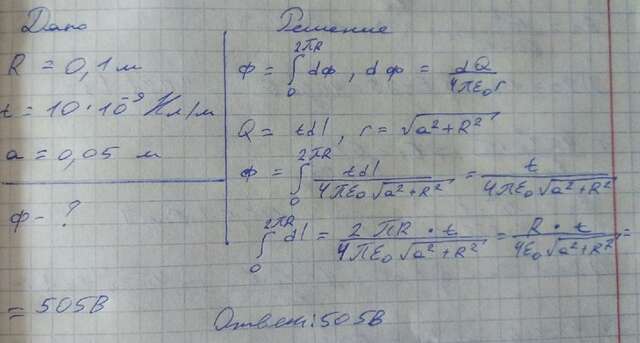 Дано
R = 0,1 м
t = 10·10⁻⁹ Кл/м
a = 0,05 м
φ - ?
Решение
φ = ∫₀^{2πR} dφ, dφ = dQ/4πε₀r
Q = tdl, r = √(a²+R²)
φ = ∫₀^{2πR} tdl/4πε₀√(a²+R²) = t/4πε₀√(a²+R²)
∫₀^{2πR} dl = 2πR·t/4πε₀√(a²+R²) = R·t/4ε₀√(a²+R²) =
= 505В
Ответ: 505В